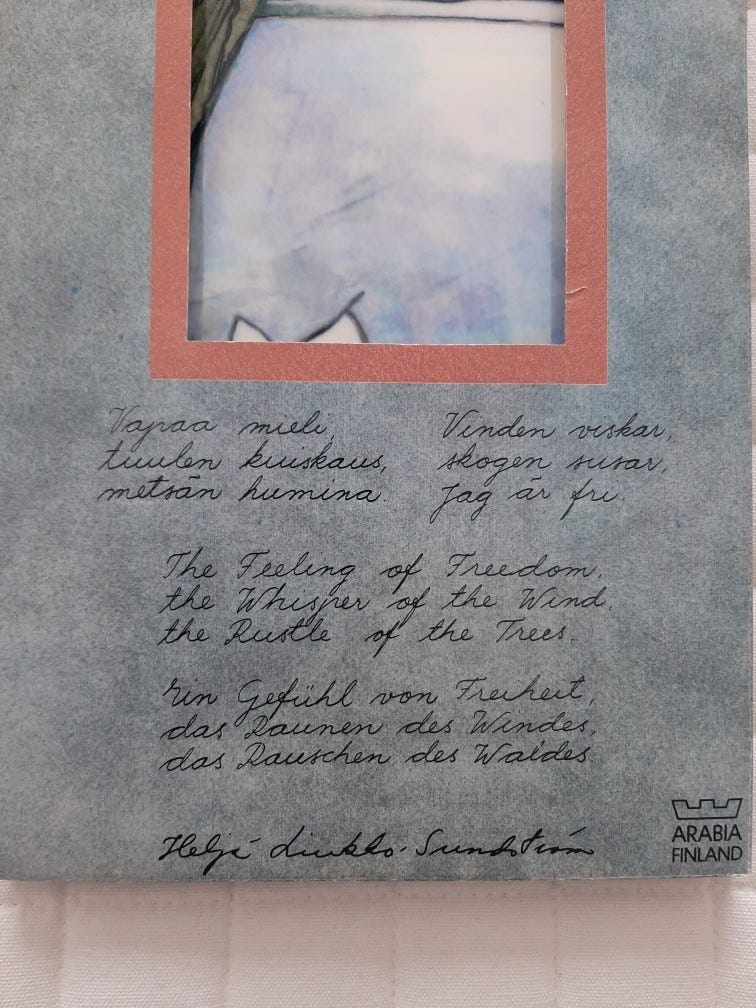 Vapaa mieli,
tuulen kuiskaus,
metsän humina.
Vinden viskar,
skogen susar,
Jag är fri.
The Feeling of Freedom,
the Whisper of the Wind,
the Rustle of the Trees.
Ein Gefühl von Freiheit,
das Raunen des Windes,
das Rauschen des Waldes.
Heljä Liukko-Sundström
ARABIA
FINLAND